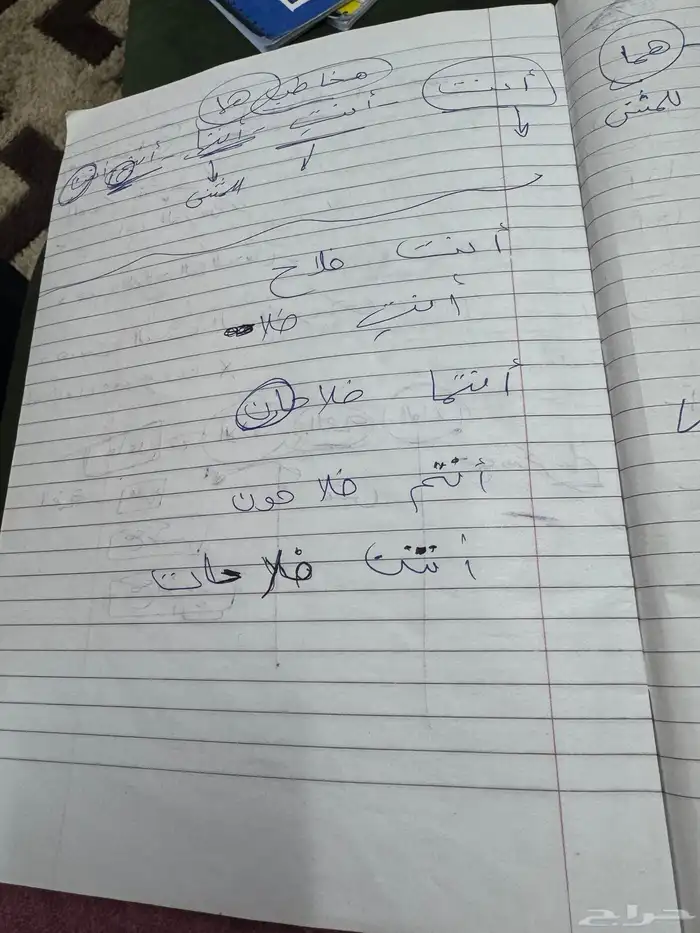 هما
للمثنى
أنت مخاطب هما
أنتِ أنتما
للمثنى
أنت فلاح
أنتِ فلا
أنتما فلاحان
أنتم فلاحون
أنتن فلاحات
حراج